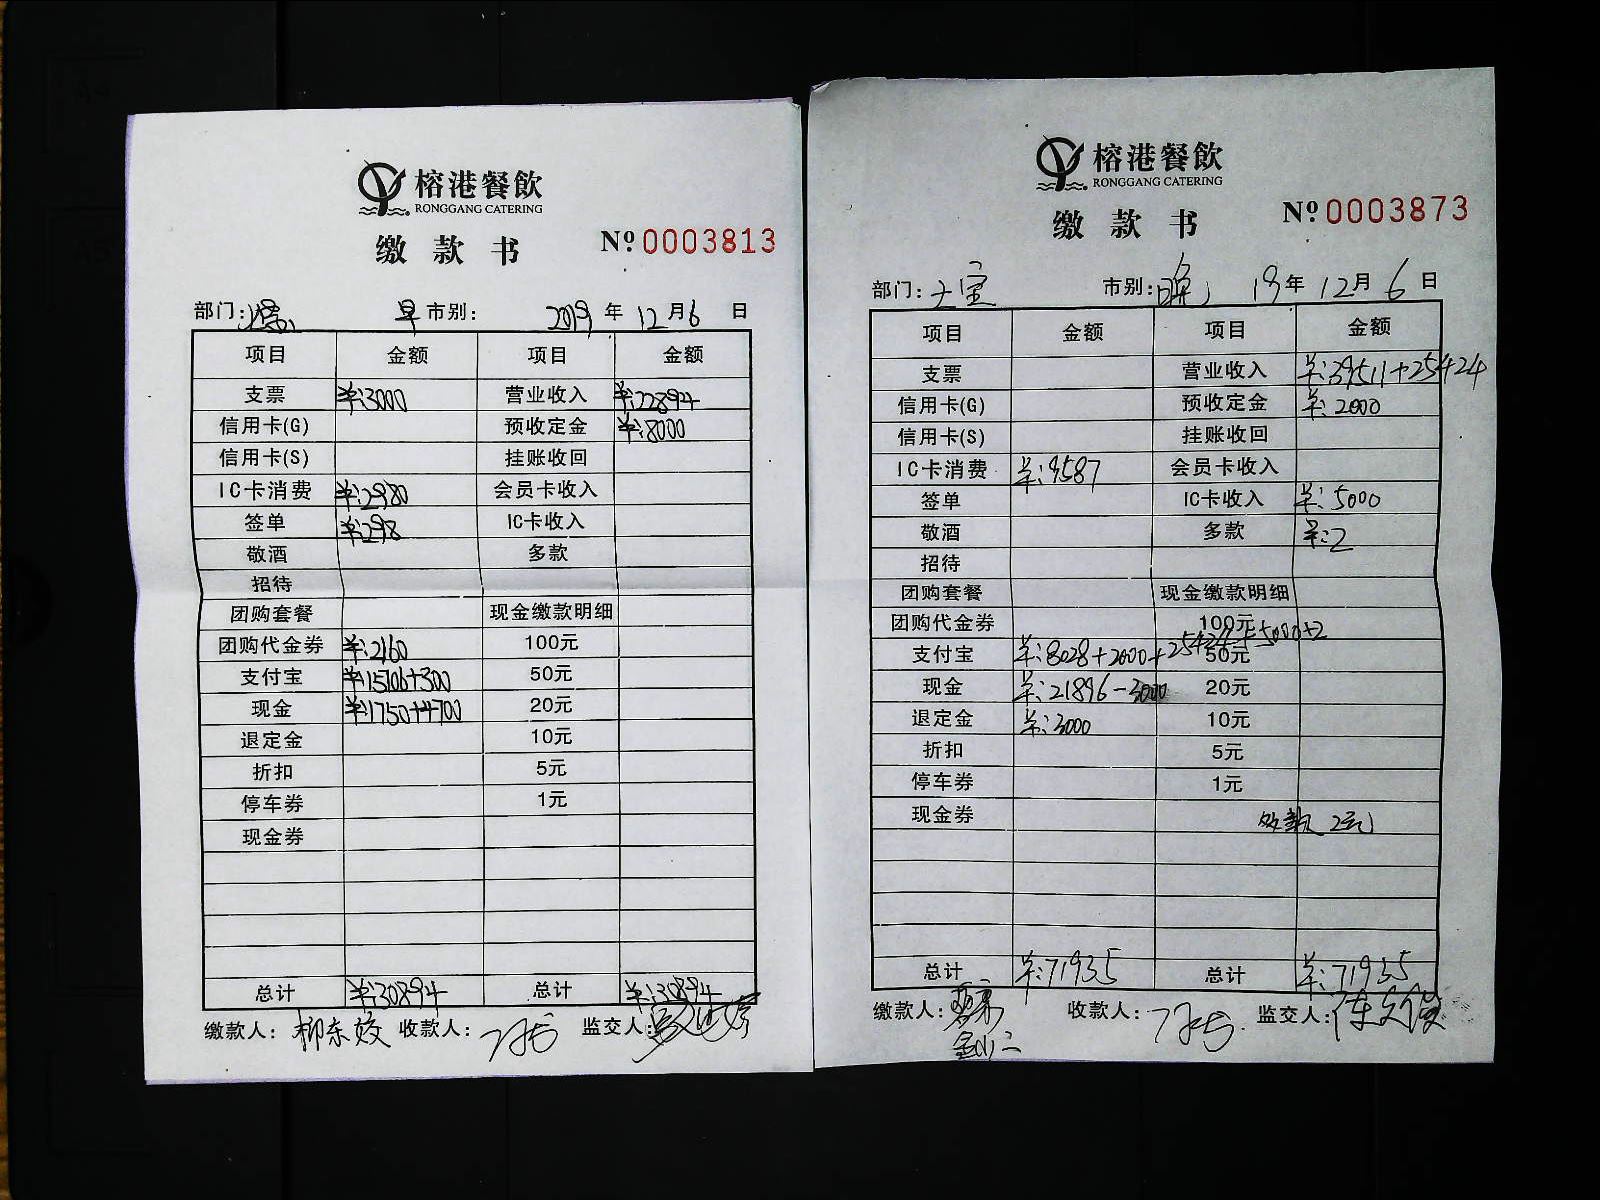 榕港餐飲
RONGGANG CATERING
缴款书
№0003813
部门: 早市别: 2019年12月6日
项目 金额 项目 金额
支票 ¥:3000 营业收入 ¥:22894
信用卡(G) 预收定金 ¥:8000
信用卡(S) 挂账收回
IC卡消费 ¥:2980 会员卡收入
签单 ¥:298 IC卡收入
敬酒 多款
招待
团购套餐 现金缴款明细
团购代金券 ¥:2160 100元
支付宝 ¥:15706+300 50元
现金 ¥:1750+4700 20元
退定金 10元
折扣 5元
停车券 1元
现金券
总计 ¥:30894 总计 ¥:30894
缴款人: 柳东姣 收款人: 监交人:
榕港餐飲
RONGGANG CATERING
缴款书
№0003873
部门: 大宝 市别: 晚 19年12月6日
项目 金额 项目 金额
支票 营业收入 ¥:39511+25424
信用卡(G) 预收定金 ¥:2000
信用卡(S) 挂账收回
IC卡消费 ¥:9587 会员卡收入
签单 IC卡收入 ¥:5000
敬酒 多款 ¥:2
招待
团购套餐 现金缴款明细
团购代金券 100元
支付宝 ¥:8028+2000+25424+5000+2 50元
现金 ¥:21896-3000 20元
退定金 ¥:3000 10元
折扣 5元
停车券 1元
现金券 多款2元
总计 ¥:71935 总计 ¥:71935
缴款人: 收款人: 监交人: